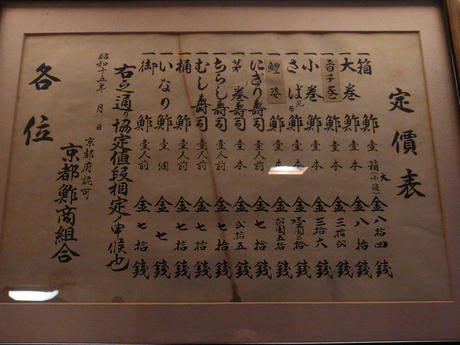 定價表
一箱鮓 壹箱 金八十四錢
一大巻鮓 壹本 金八拾錢
一子巻鮓 壹本 金三拾錢
一小巻鮓 壹本 金三拾六錢
一さば鮓 壹本 金錢
一鯉姿鮓 壹本 金錢
一にぎり寿司 壹人前 金七拾錢
一巻寿司 壹本 金弐拾五錢
一ちらし寿司 壹人前 金七拾錢
一むし寿司 壹人前 金七拾錢
一桶鮓 壹人前 金七拾錢
一いなり鮓 壹個 金七錢
一御鮓 壹人前 金七拾錢
右之通り協定値段相定メ申候也
昭和十五年 月 日
京都府認可
京都鮓商組合
各位